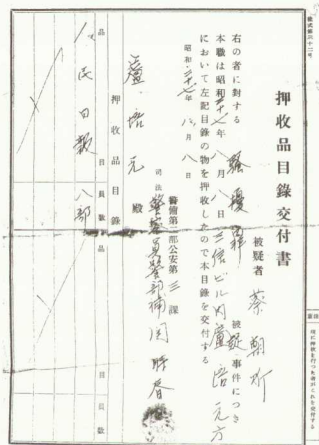 様式第三十二号
押收品目錄交付書
被疑者 蔡朝炘
右の者に対する 騒擾罪 被疑事件につき
本職は昭和二十七年八月八日三信ビル内盧培元方
において左記目録の物を押收したので本目録を交付する
昭和二十七年八月八日
警備第二部公安第三課
司法警察員警部補 関勝春
盧培元殿
押收品目錄
品目 員数 品目 員数
人民日報 八部